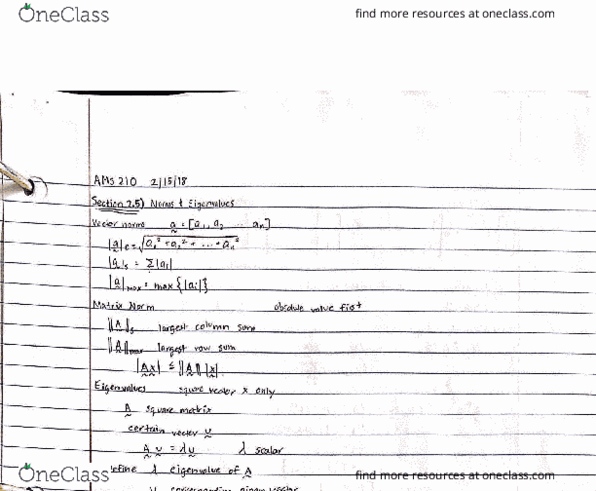 OneClass find more resources at oneclass.com
AMS 210 2/15/18
Section 2.5) Norms & Eigenvalues
Vector norms a = [a₁, a₂ ... aₙ]
|a|e = √a₁² + a₂² + ... + aₙ²
|a|s = Σ|aᵢ|
|a|max = max{|aᵢ|}
Matrix Norm absolute value first
||A||s largest column sum
||A||max largest row sum
|Ax| ≤ ||A|| |x|
Eigenvalues square vector x only
A square matrix
certain vector u
A u = λu λ scalar
define λ eigenvalue of A
OneClass find more resources at oneclass.com
u corresponding eigenvector